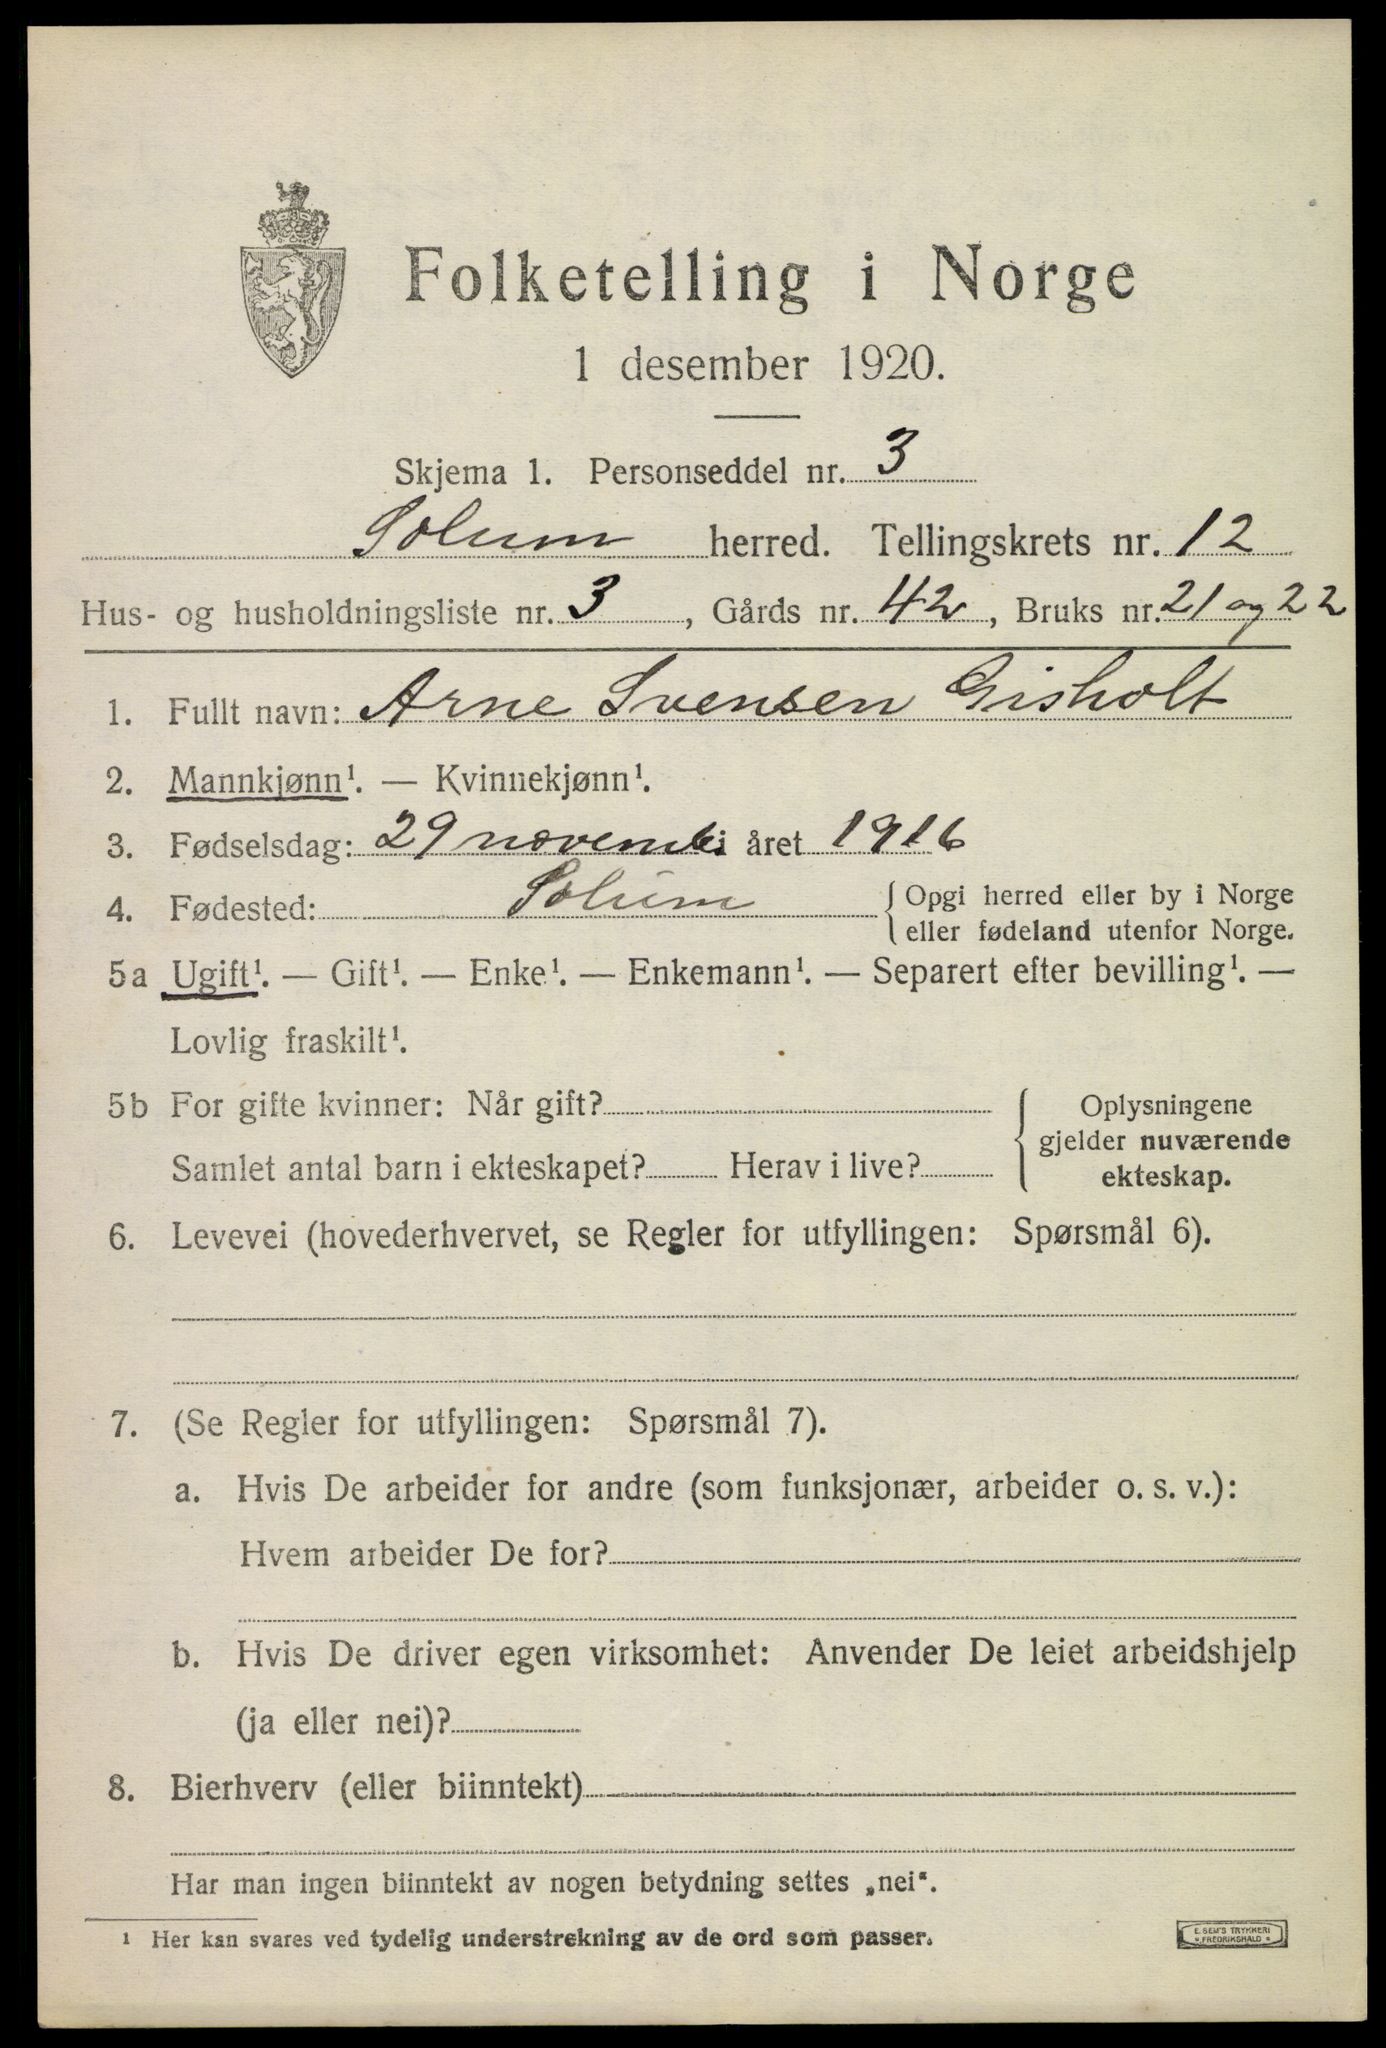 Folketelling i Norge
1 desember 1920.
Skjema 1. Personseddel nr. 3
Solum herred. Tellingskrets nr. 12
Hus- og husholdningsliste nr. 3, Gårds nr. 42, Bruks nr. 21 og 22
1. Fullt navn: Arne Svensen Gisholt
2. Mannkjønn¹. — Kvinnekjønn¹.
3. Fødselsdag: 29 novemb. i året 1916
4. Fødested: Solum { Opgi herred eller by i Norge
eller fødeland utenfor Norge.
5a Ugift¹. — Gift¹. — Enke¹. — Enkemann¹. — Separert efter bevilling¹. —
Lovlig fraskilt¹.
5b For gifte kvinner: Når gift?
Samlet antal barn i ekteskapet? Herav i live?
{ Oplysningene
gjelder nuværende
ekteskap.
6. Levevei (hovederhvervet, se Regler for utfyllingen: Spørsmål 6).
7. (Se Regler for utfyllingen: Spørsmål 7).
a. Hvis De arbeider for andre (som funksjonær, arbeider o. s. v.):
Hvem arbeider De for?
b. Hvis De driver egen virksomhet: Anvender De leiet arbeidshjelp
(ja eller nei)?
8. Bierhverv (eller biinntekt)
Har man ingen biinntekt av nogen betydning settes „nei".
¹ Her kan svares ved tydelig understrekning av de ord som passer.
E. SEM'S TRYKKERI
* FREDRIKSHALD *